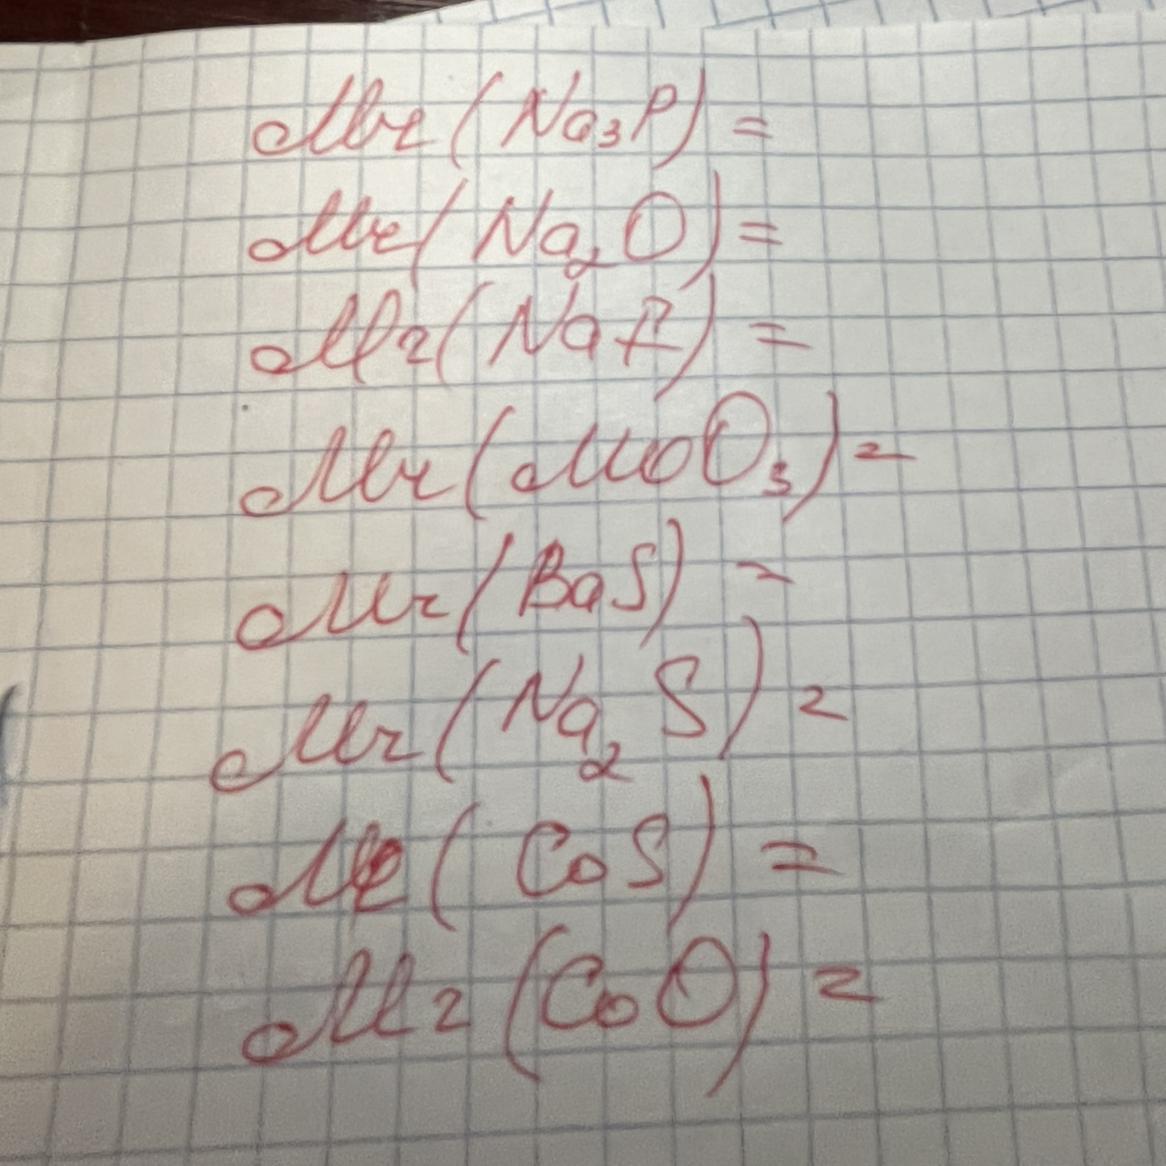 Mr(Na₃P)=
Mr(Na₂O)=
Mr(NaF)=
Mr(MoO₃)=
Mr(BaS)=
Mr(Na₂S)=
Mr(CoS)=
Mr(CoO)=